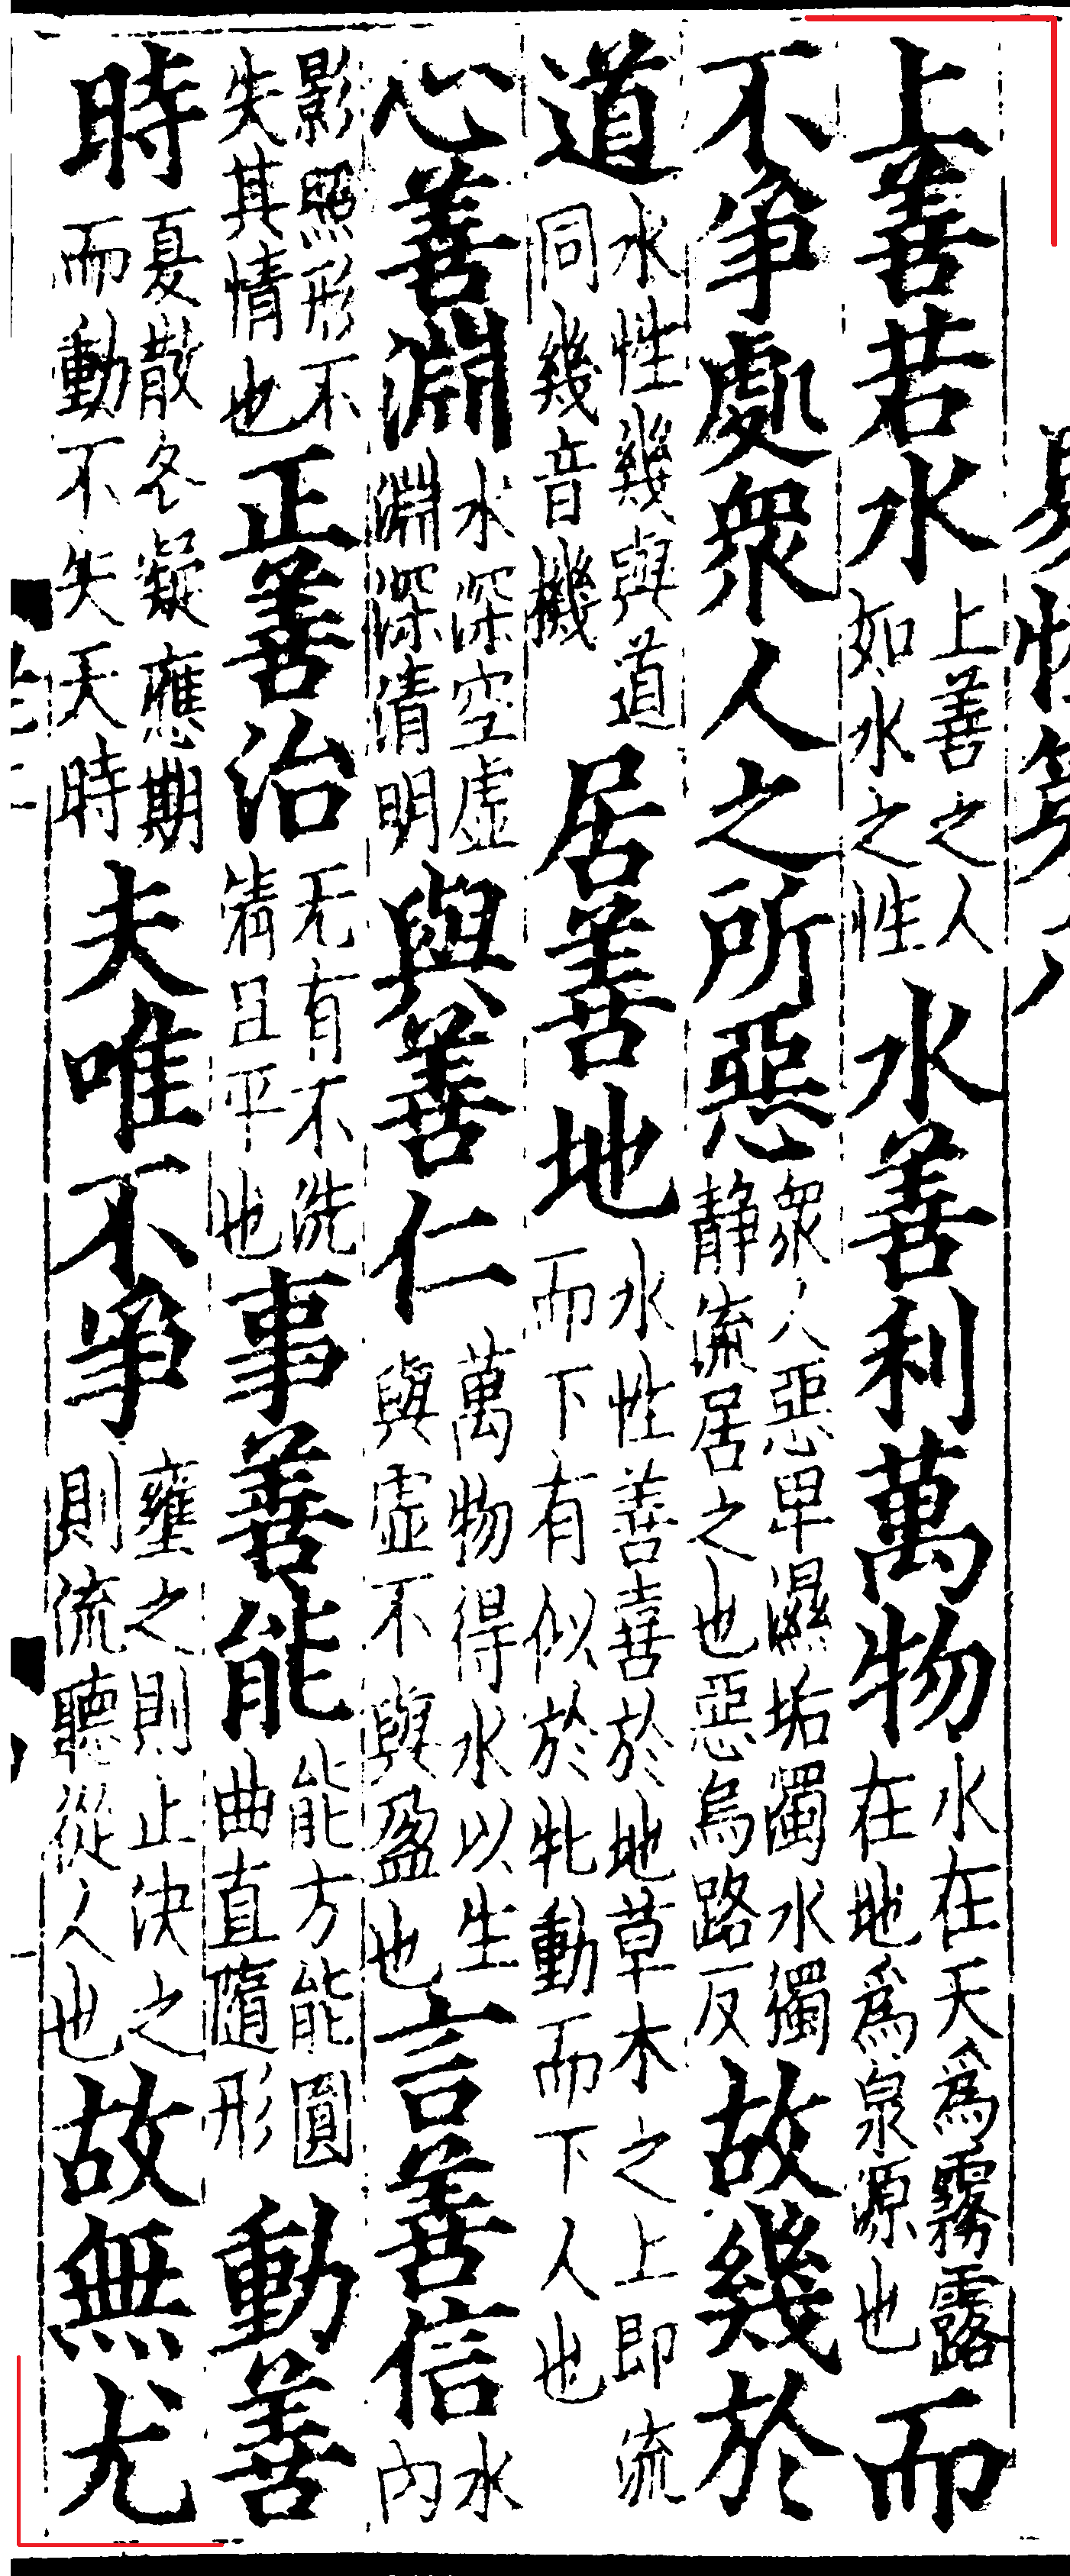 上善若水上善之人如水之性水善利萬物水在天爲霧露在地爲泉源也而
不爭處衆人之所惡衆人惡卑濕垢濁水獨静流居之也惡烏路反故幾於
道水性幾與道同幾音機居善地水性善喜於地草木之上即流而下有似於牝動而下人也
心善淵水深空虛淵深清明與善仁萬物得水以生與虛不與盈也言善信水内
影照形不失其情也正善治无有不洗清且平也事善能能方能圓曲直隨形動善
時夏散冬凝應期而動不失天時夫唯不爭壅之則止決之則流聽從人也故無尤